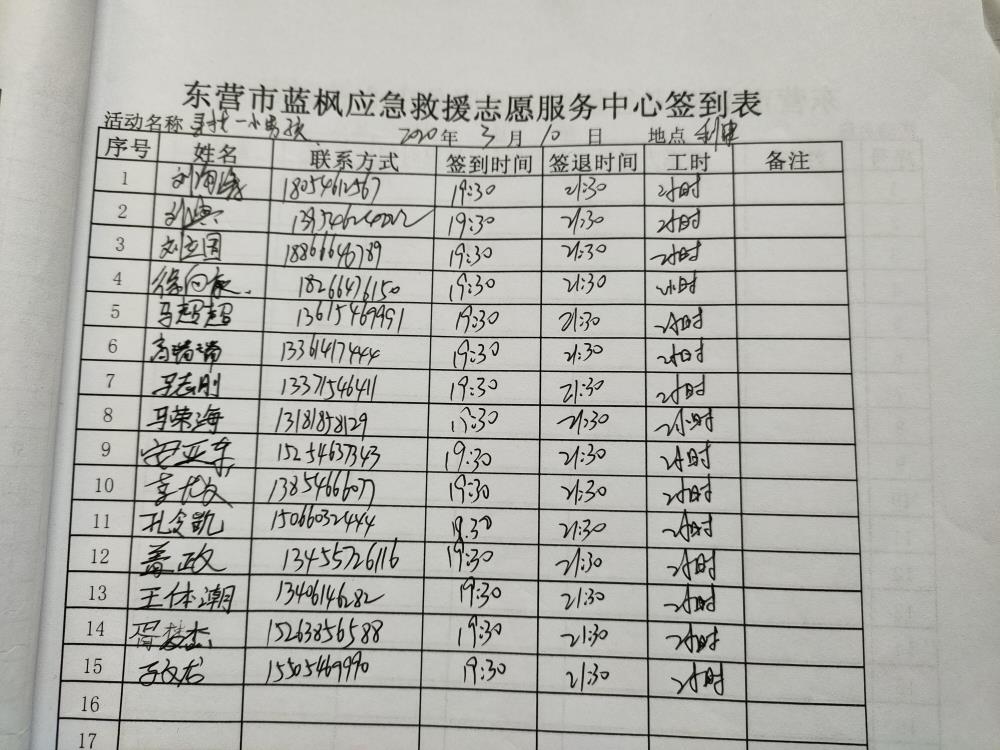 东营市蓝枫应急救援志愿服务中心签到表
活动名称 寻找一小男孩 2020年 3月 10日 地点 利津
序号 姓名 联系方式 签到时间 签退时间 工时 备注
1 刘海涛 18054612567 19:30 21:30 2小时
2 19:30 21:30 2小时
3 刘立国 18866646789 19:30 21:30 2小时
4 徐向 18266476150 19:30 21:30 小时
5 马超超 13615469991 19:30 21:30 2小时
6 高瑞瑞 13361417444 19:30 21:30 2小时
7 马志刚 13371546411 19:30 21:30 2小时
8 马荣海 13181858129 19:30 21:30 2小时
9 安亚东 15254637343 19:30 21:30 2小时
10 13854666077 19:30 21:30 2小时
11 孔令凯 15066032444 19:30 21:30 2小时
12 政 13455726116 19:30 21:30 2小时
13 王体潮 13406146282 19:30 21:30 2小时
14 胥梦杰 15263856588 19:30 21:30 2小时
15 15505469990 19:30 21:30 2小时
16
17